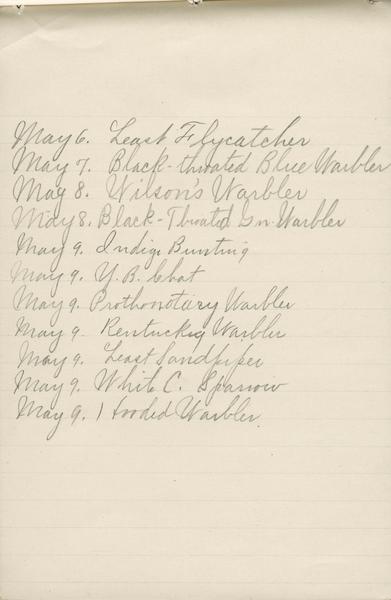 May 6. Least Flycatcher
May 7. Black-throated Blue Warbler
May 8. Wilson's Warbler
May 8. Black-Throated Gn. Warbler
May 9. Indigo Bunting
May 9. Y. B. Chat
May 9. Prothonotary Warbler
May 9. Kentucky Warbler
May 9. Least Sandpiper
May 9. White C. Sparrow
May 9. Hooded Warbler.